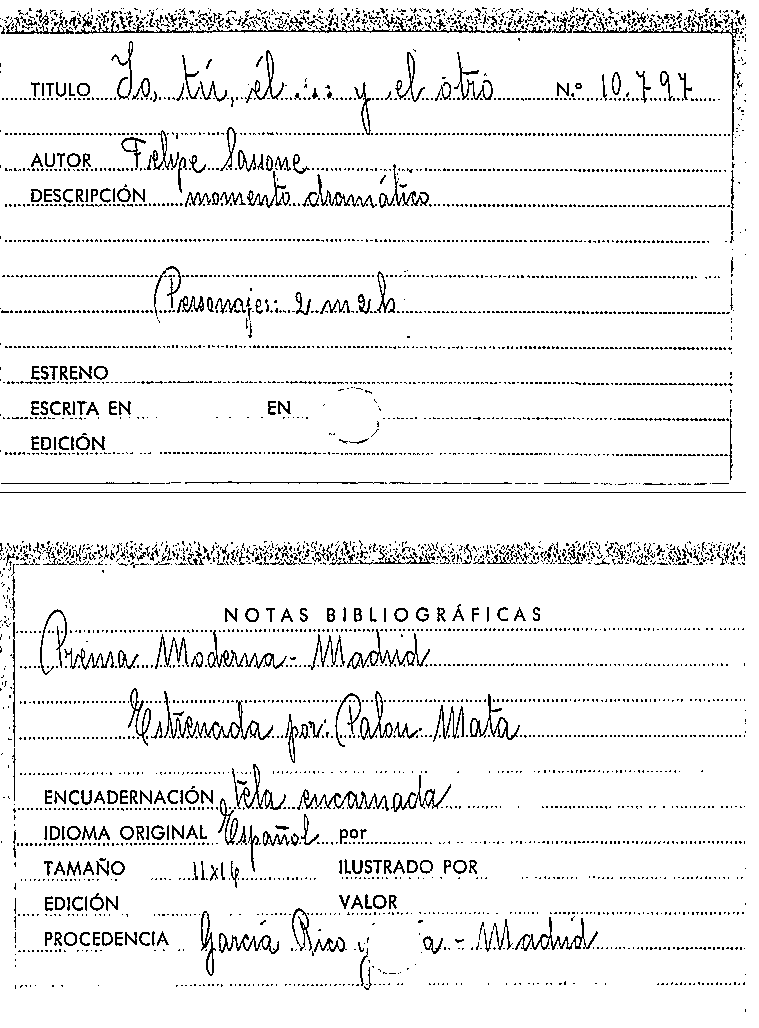 TITULO Yo, tú, él ... y el otro N.º 10.797
AUTOR Felipe Sassone
DESCRIPCIÓN momento dramático
Personajes: 2 m 2 h
ESTRENO
ESCRITA EN EN
EDICIÓN
NOTAS BIBLIOGRÁFICAS
Prensa Moderna - Madrid
Estrenada por: Palou Mata
ENCUADERNACIÓN tela encarnada
IDIOMA ORIGINAL Español por
TAMAÑO 11x16 ILUSTRADO POR
EDICIÓN VALOR
PROCEDENCIA García Rico y a - Madrid